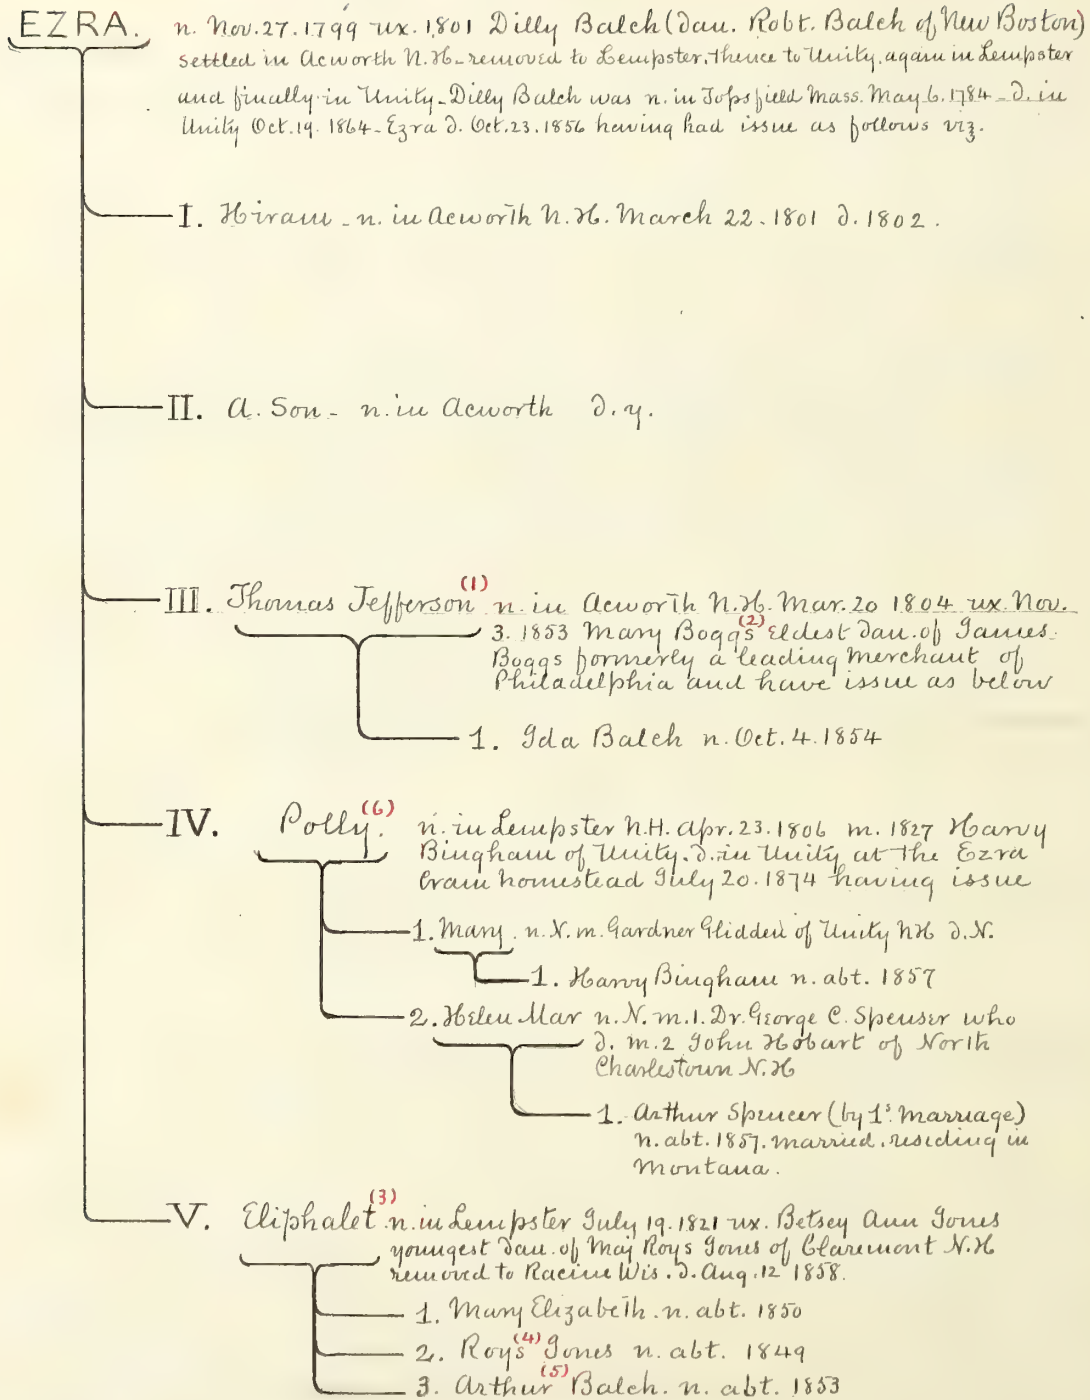 EZRA. n. Nov. 27. 1799 ux. 1801 Dilly Balch (dau. Robt. Balch of New Boston)
settled in Acworth N.H. - removed to Lempster, thence to Unity, again in Lempster
and finally in Unity - Dilly Balch was n. in Topsfield Mass. May 6. 1784 - d. in
Unity Oct. 19. 1864 - Ezra d. Oct. 23. 1856 having had issue as follows viz.
I. Hiram - n. in Acworth N.H. March 22. 1801 d. 1802.
II. A. Son - n. in Acworth d. y.
III. Thomas Jefferson (1) n. in Acworth N.H. Mar. 20 1804 ux. Nov.
3. 1853 Mary Boggs (2) Eldest dau. of James
Boggs formerly a leading Merchant of
Philadelphia and have issue as below
1. Ida Balch n. Oct. 4. 1854
IV. Polly. (6) n. in Lempster N.H. Apr. 23. 1806 m. 1827 Harvy
Bingham of Unity. d. in Unity at the Ezra
Cram homestead July 20. 1874 having issue
1. Mary. n. N. m. Gardner Glidden of Unity NH d. N.
1. Harvy Bingham n. abt. 1857
2. Helen Mar n. N. m. 1. Dr. George C. Spenser who
d. m. 2 John Hobart of North
Charlestown N.H
1. Arthur Spencer (by 1s. Marriage)
n. abt. 1857. married. residing in
Montana.
V. Eliphalet (3) n. in Lempster July 19. 1821 ux. Betsey Ann Jones
youngest dau. of Maj Roys Jones of Claremont N.H
removed to Racine Wis. d. Aug. 12 1858.
1. Mary Elizabeth. n. abt. 1850
2. Roys (4) Jones n. abt. 1849
3. Arthur (5) Balch. n. abt. 1853